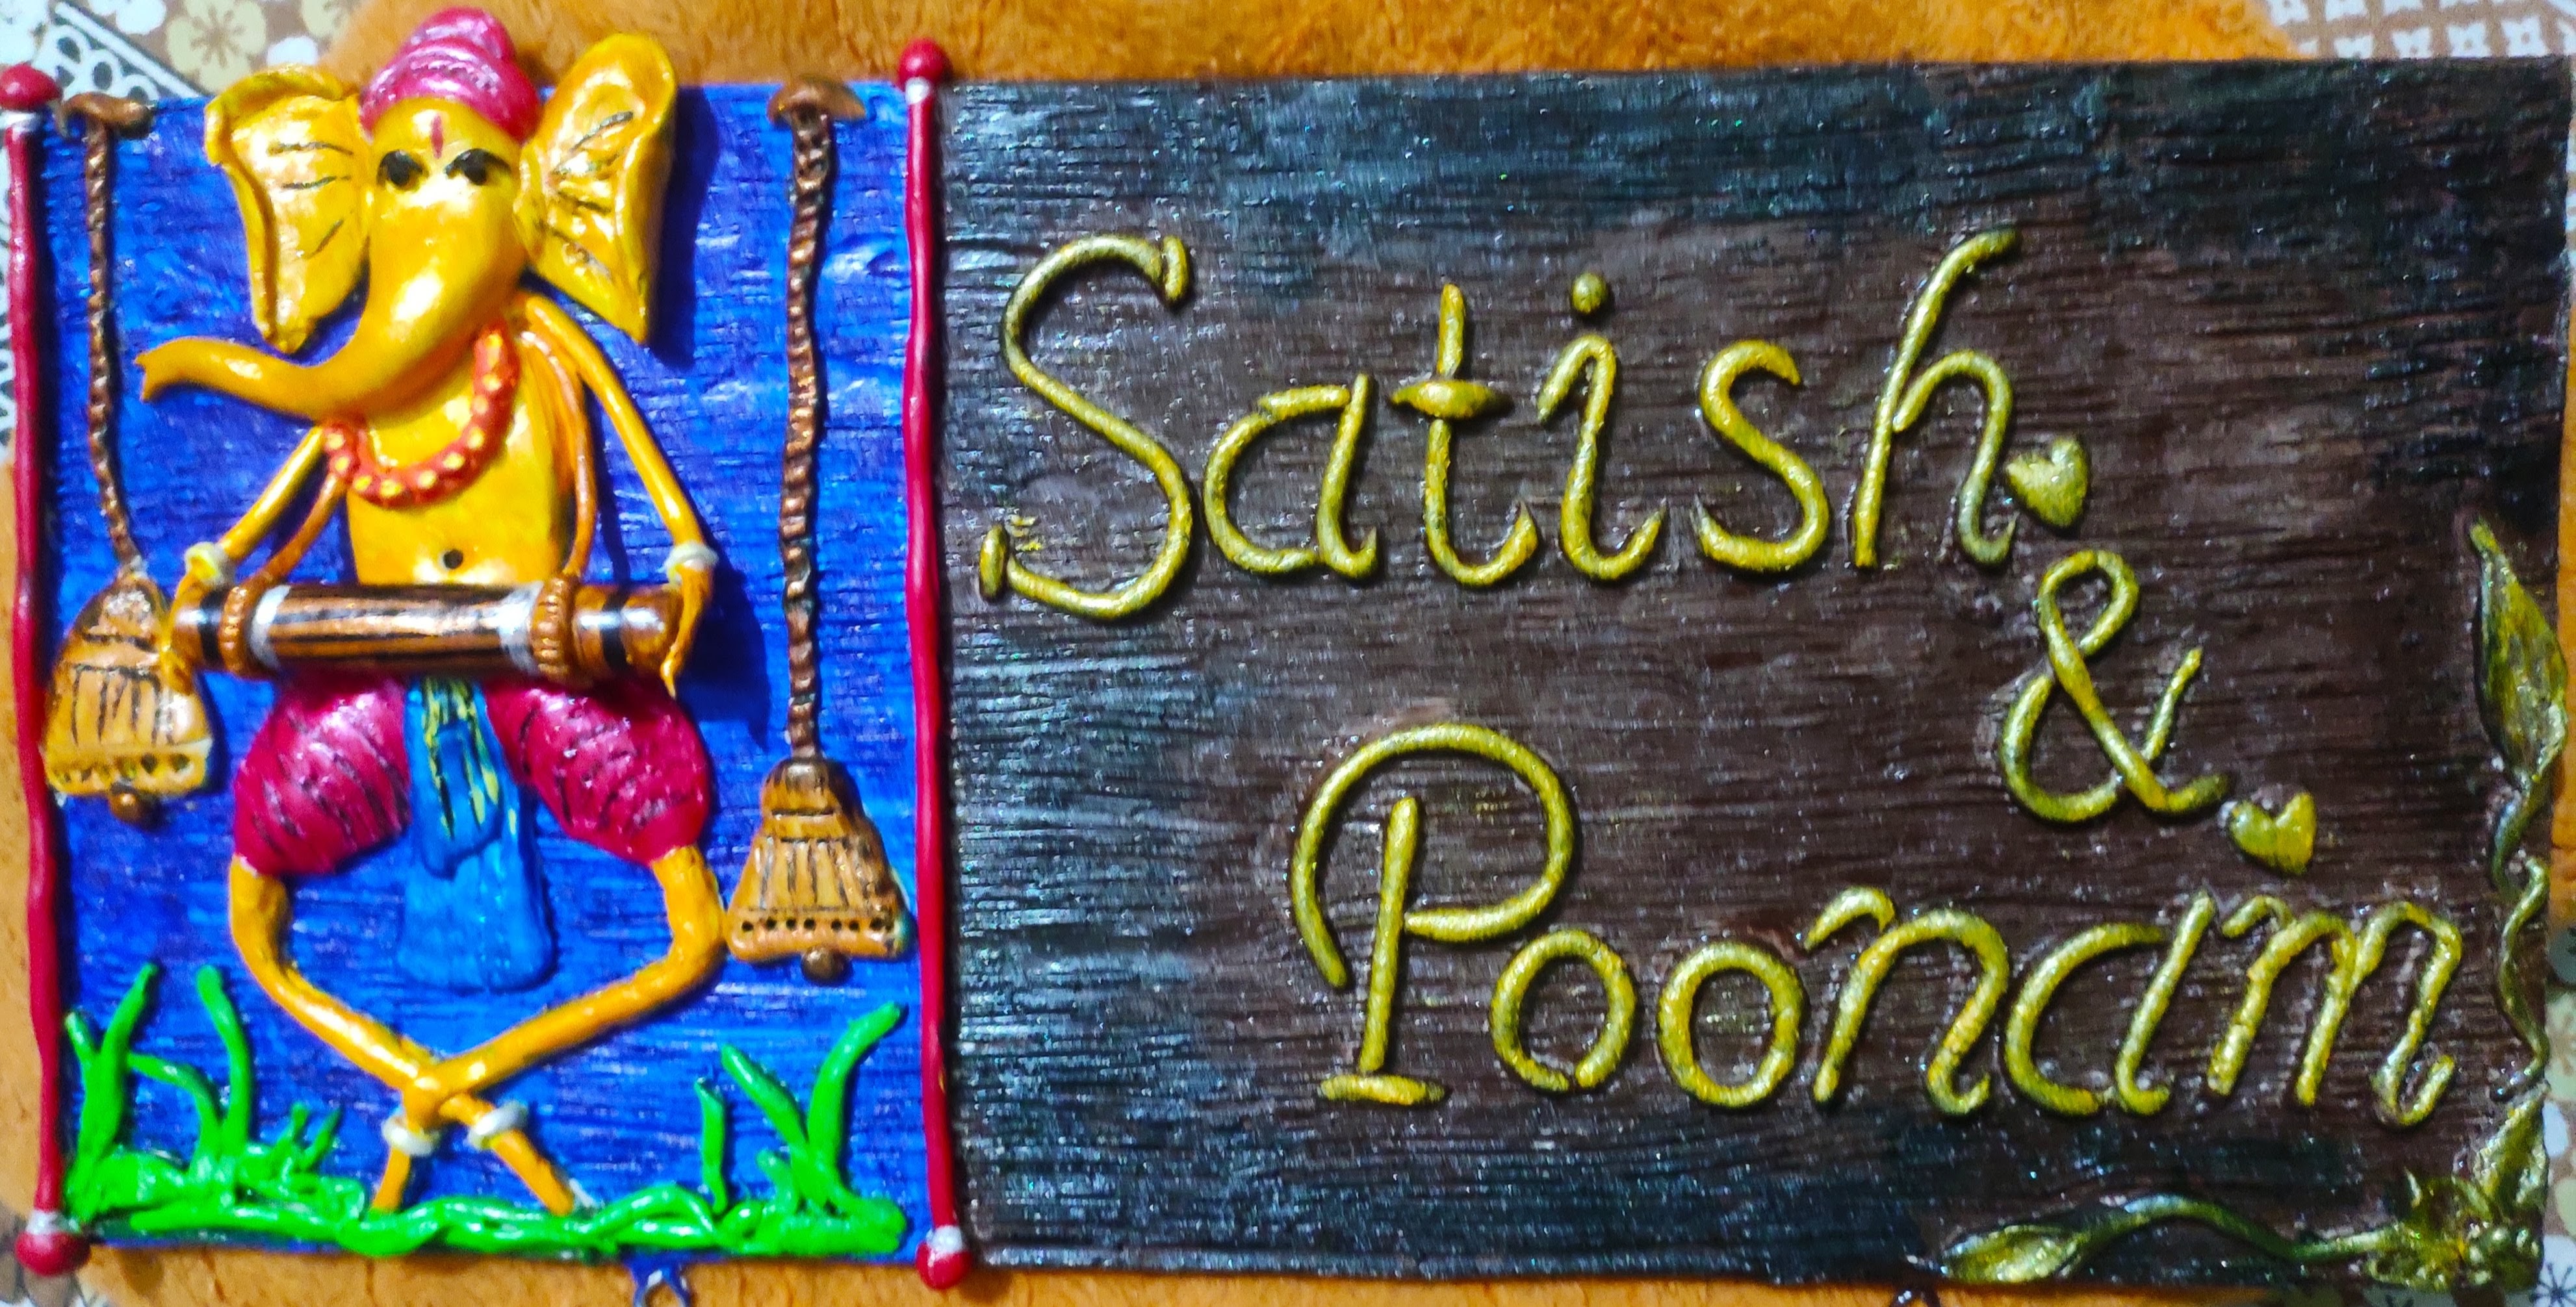 Satish
&
Poonam